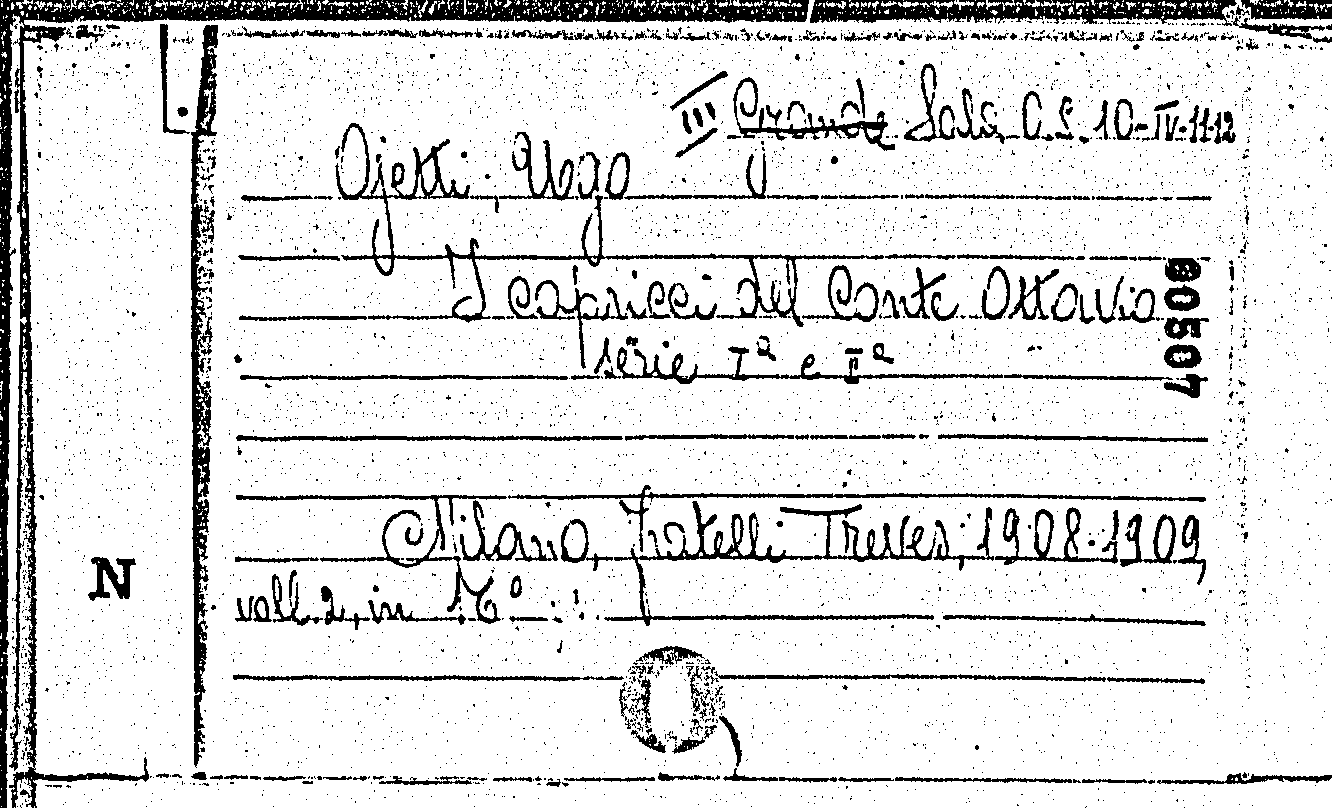 III Grande Sala, C. S. 10-IV-11-12
Ojetti, Ugo
I capricci del Conte Ottavio
serie Iª e IIª
00507
Milano, Fratelli Treves, 1908-1909,
N
voll. 2, in 16°